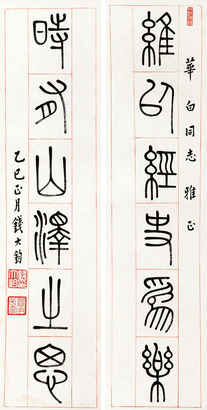 華白同志雅正
雖以經史為樂
時有山澤之思
乙巳正月錢大鈞